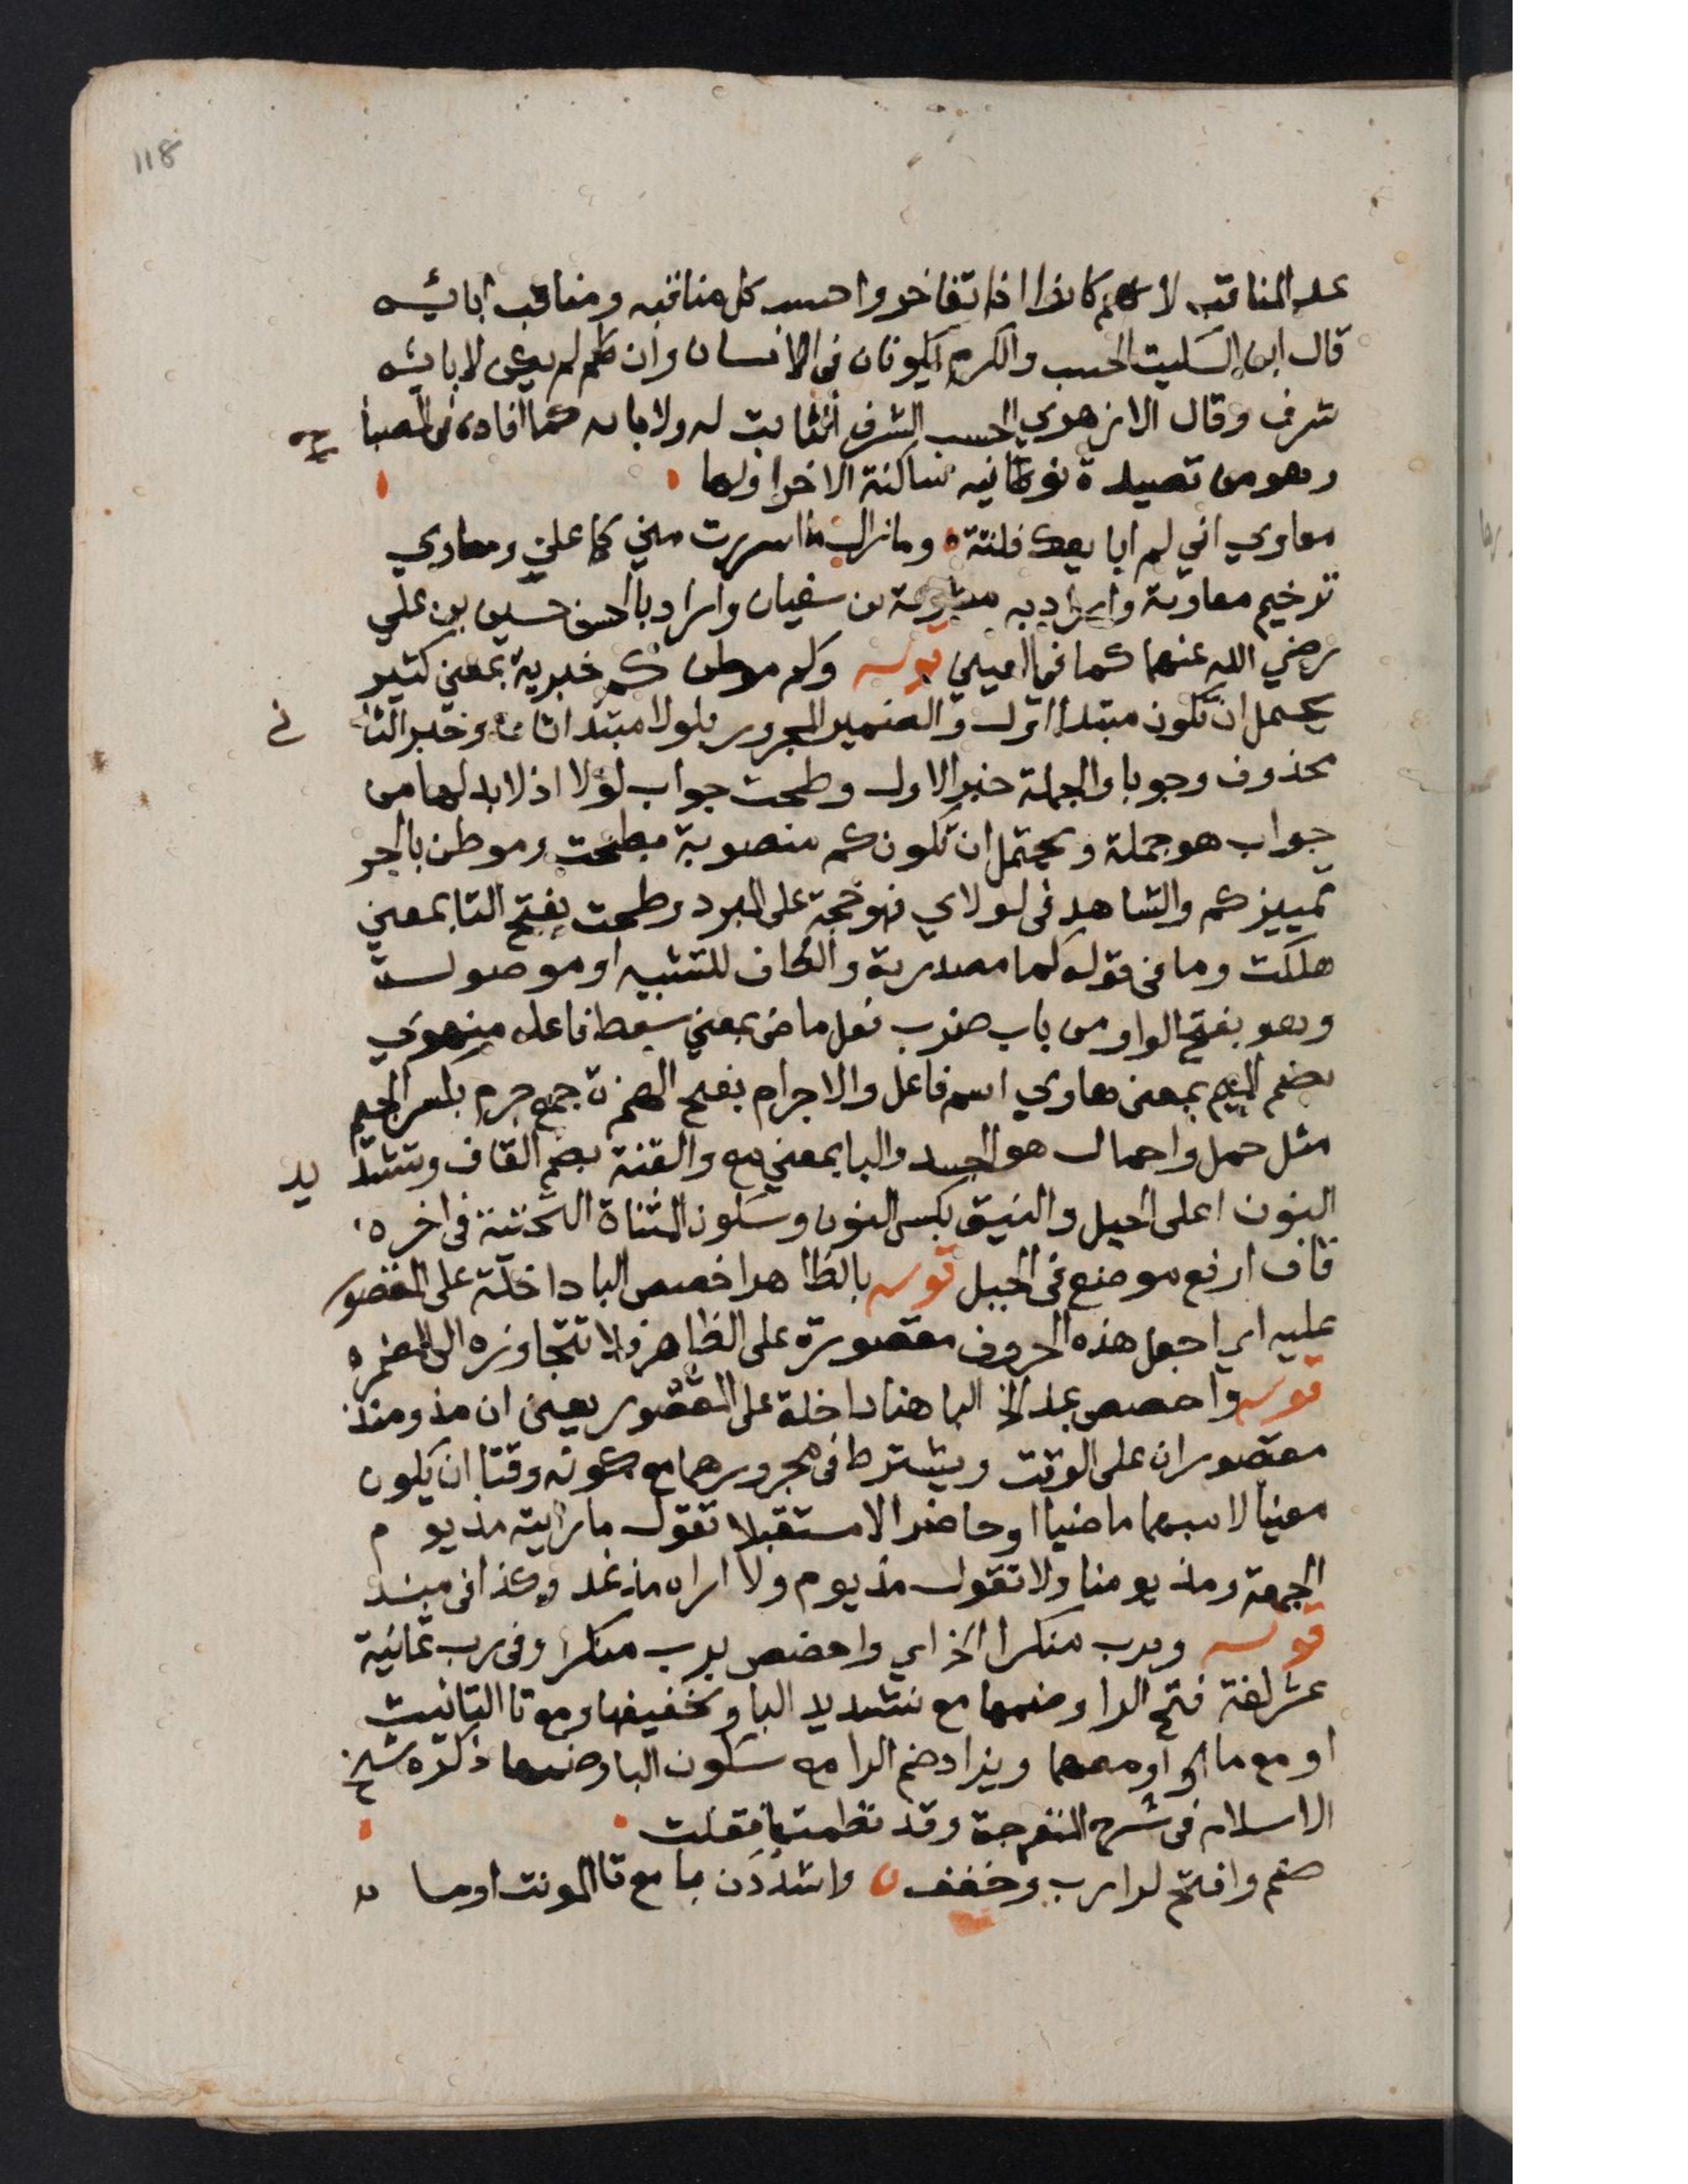 118
عد المناقب لانهم كانوا اذا تفاخروا حسب كل مناقبه ومناقب ابائه
قال ابن السكيت الحسب والكرم يكونان في الانسان وان لم يكن لابائه
شرف وقال الازهري الحسب الشرف الثابت له ولابائه كما افاده في المصباح
وهو من قصيدة نونية ساكنة الاخر اولها
معاوي اني لم ابايعك فلتة وما زال ما اسررت مني كما علن ومعاوي
ترخيم معاوية واراد به معوية بن سفيان واراد بالحسن حسين بن علي
رضي الله عنهما كما في العيني قوله وكم موطن كم خبرية بمعني كثير
يحتمل ان تكون مبتدا اول والضمير المجرور بلولا مبتدا ثان وخبر الثاني
محذوف وجوبا والجملة خبر الاول وطحت جواب لولا اذ لابد لها من
جواب هو جملة ويحتمل ان تكون كم منصوبة بطحت وموطن بالجر
تمييز كم والشاهد في لولاي فهو حجة على المبرد وطحت بفتح التا بمعني
هلكت وما في قوله كما مصدرية والكاف للتشبيه او موصولة
وهو بفتح الواو من باب ضرب فعل ماض بمعني سقط فاعله منهوي
بضم الميم بمعني هاوي اسم فاعل والاجرام بفتح الهمزة جمع جرم بكسر الجيم
مثل حمل واحمال هو الجسد والبا بمعني مع والقنة بضم القاف وتشديد
النون اعلى الجبل والنيق بكسر النون وسكون المثناة التحتية في اخره
قاف ارفع موضع في الجبل قوله بالظاهر اخصص البا داخلة على المقصور
عليه اي اجعل هذه الحروف مقصورة على الظاهر ولا تتجاوزه الى المضمر
قوله واخصص بمذ الخ البا هنا داخلة على المقصور يعني ان مذ ومنذ
مقصوران على الوقت ويشترط في مجرورهما مع كونه وقتا ان يكون
معينا لا مبهما ماضيا او حاضرا لا مستقبلا تقول ما رايته مذ يوم
الجمعة ومذ يومنا ولا تقول مذ يوم ولا اراه مذ غد وكذا في منذ
قوله وبرب منكرا الخ اي واخصص برب منكرا وفي رب ثمانية
عشر لغة فتح الرا وضمها مع تشديد البا وتخفيفها ومع تا التانيث
او مع ما او معهما ويزاد ضم الرا مع سكون البا وضمها ذكره شيخ
الاسلام في شرح المنفرجة وقد نظمتها فقلت
ضم وافتح لرا رب وخفف واشددن با مع تا المونث او ما